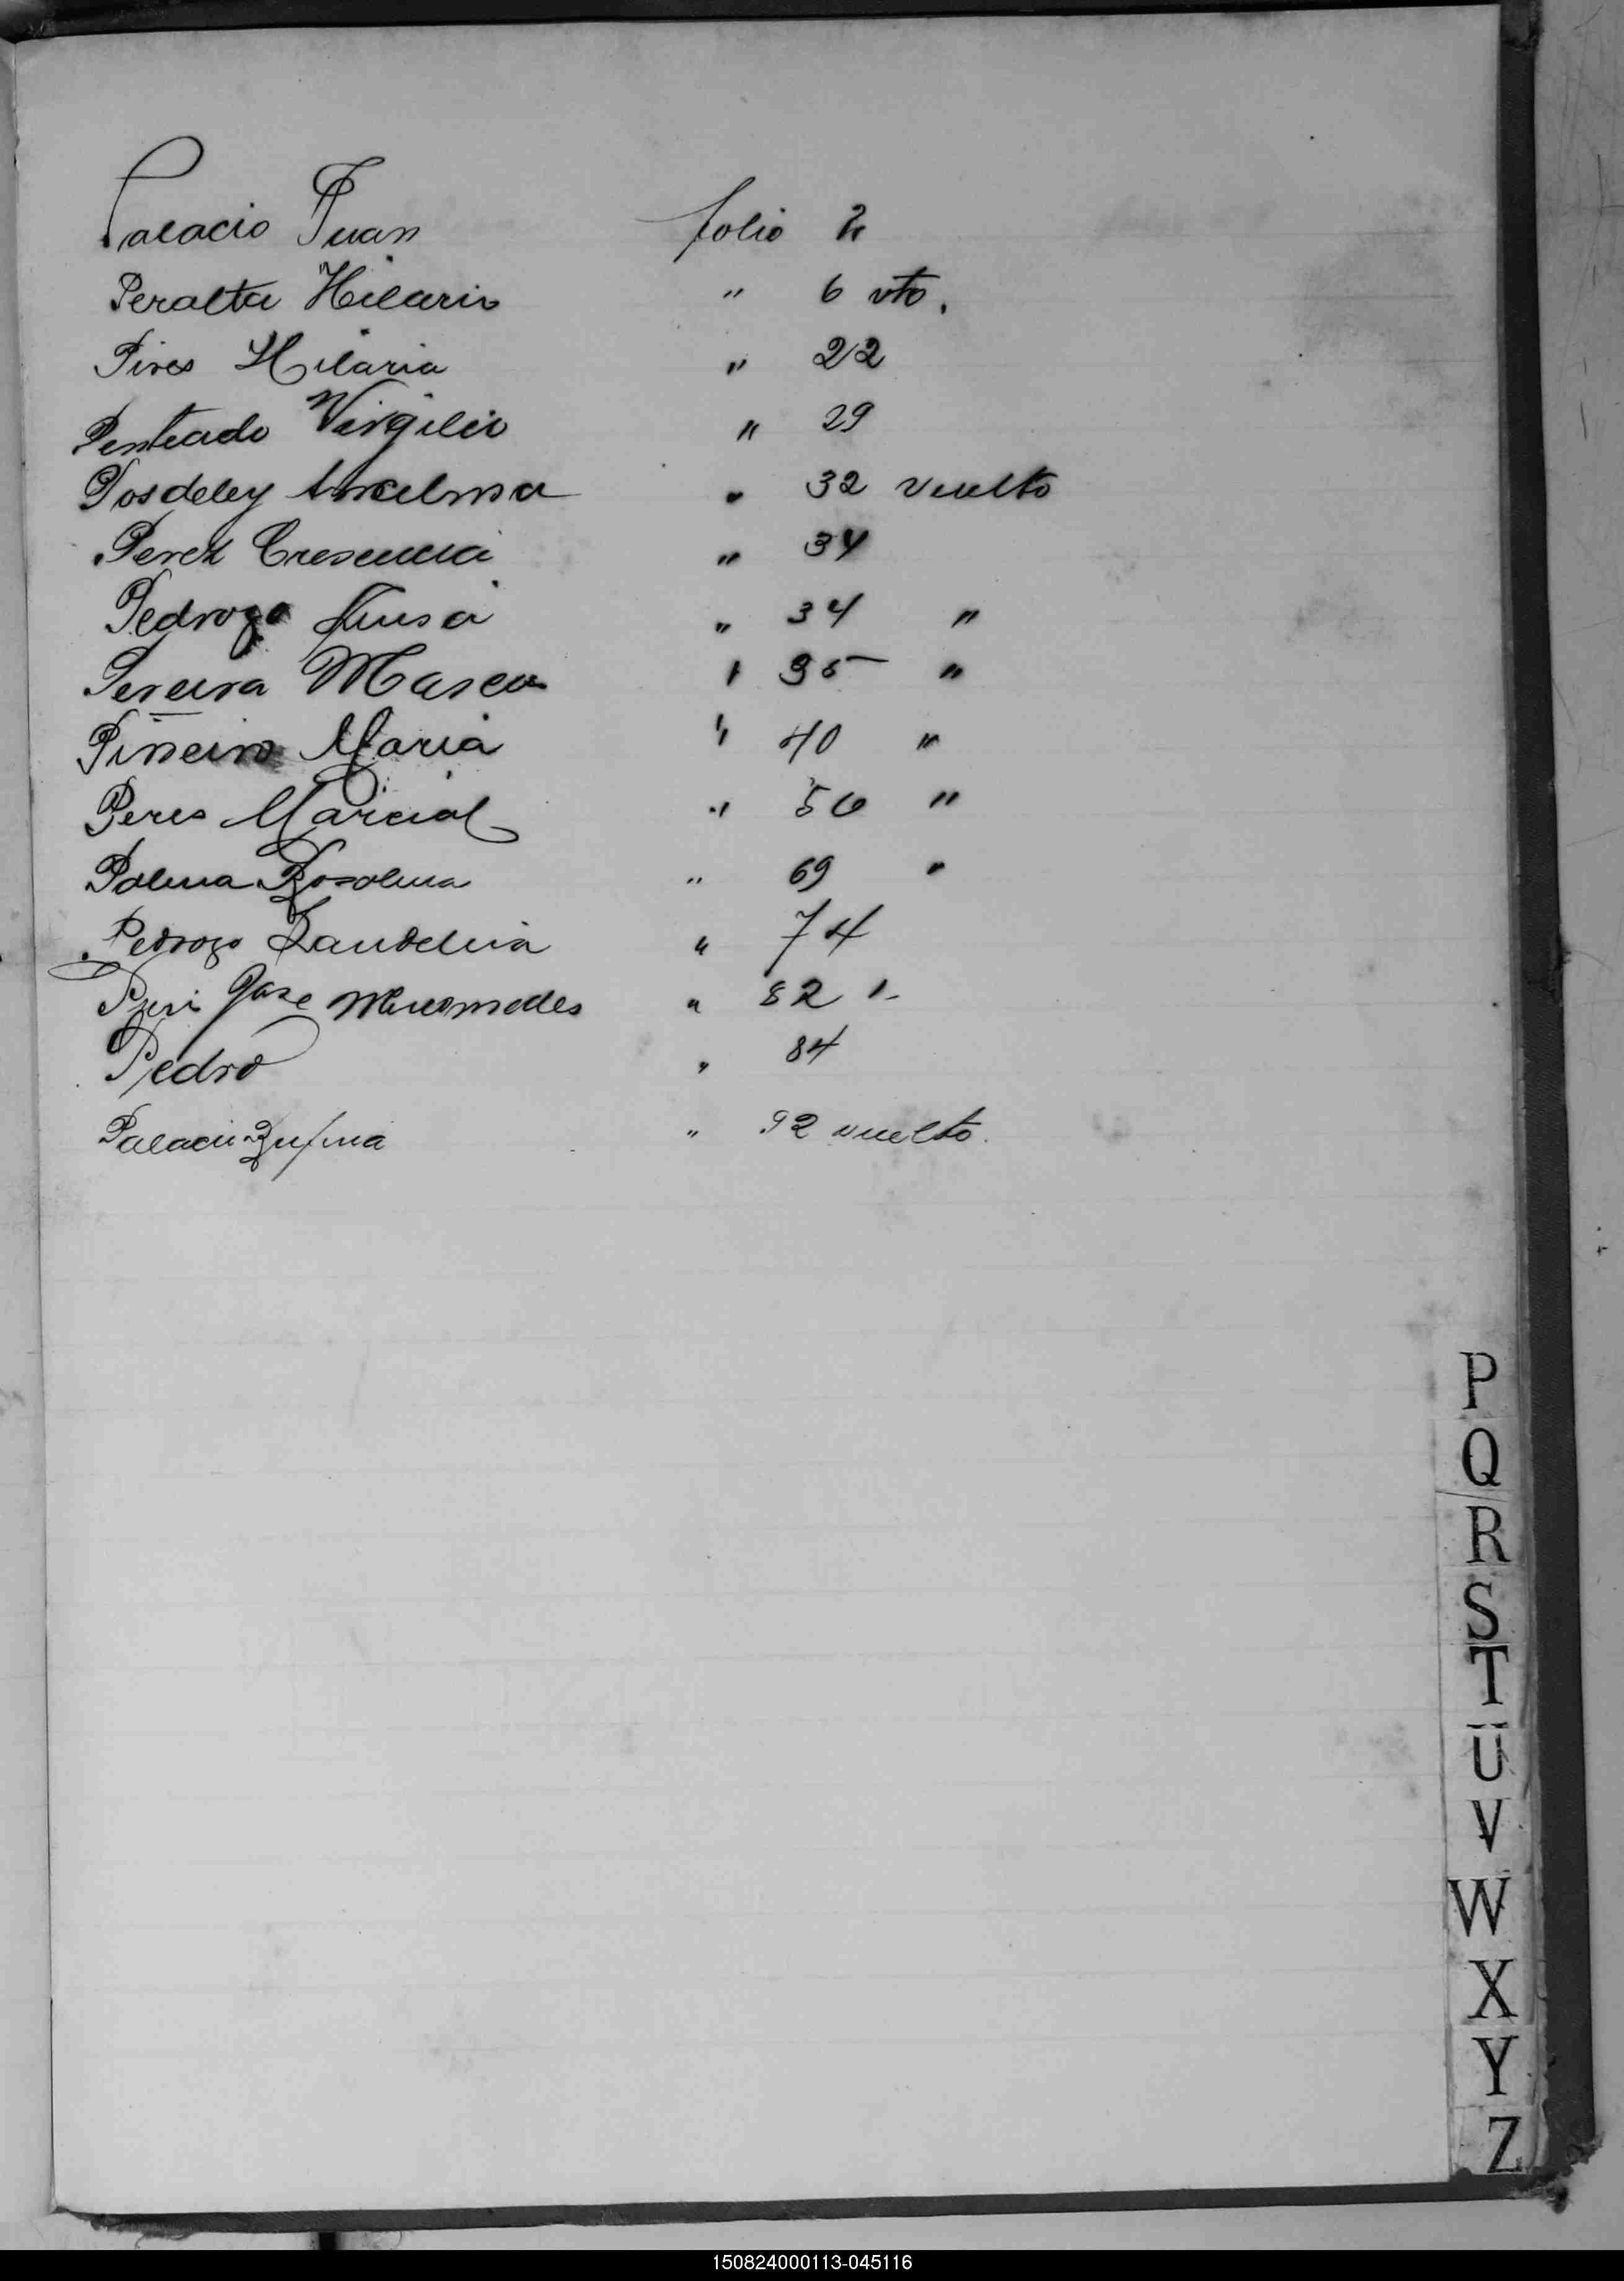 Palacio Juan folio 2
Peralta Hilario " 6 vto.
Pires Hilaria " 22
Penteado Virgilio " 29
Posdeley Anselma " 32 vuelto
Perez Cresencia " 34
Pedrozo Luisa " 34 "
Pereira Maria " 35 "
Piñeiro Maria " 40 "
Peres Marcial " 56 "
Palma Rosalina " 69 "
Pedrozo Landelina " 74
José " 82 "
Pedro " 84
Palacio Rufina " 92 vuelto.
P
Q
R
S
T
U
V
W
X
Y
Z
150824000113-045116